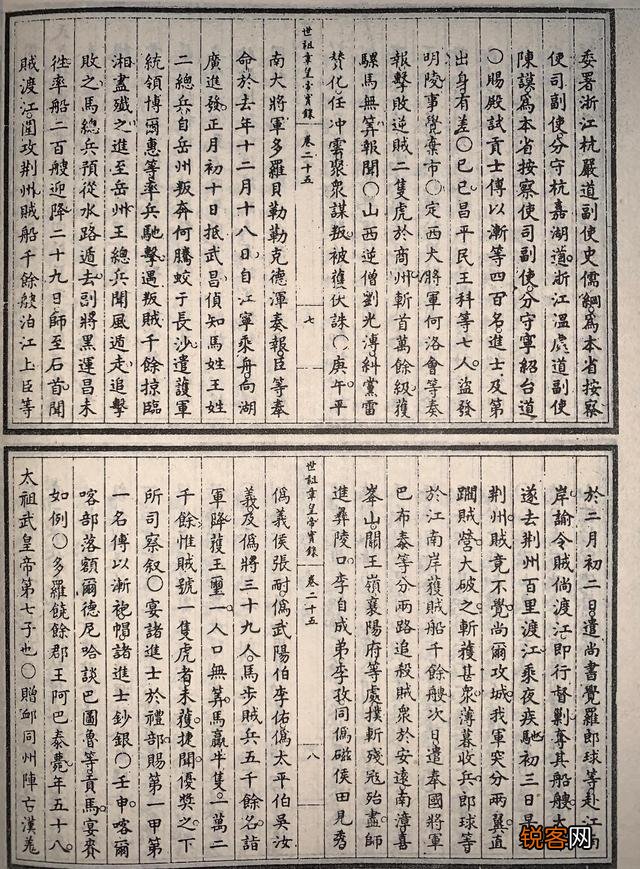 委署浙江杭嚴道副使史儒綱為本省按察
使司副使分守杭嘉湖道浙江溫處道副使
陳謨為本省按察使司副使分守寧紹台道
○賜殿試貢士傅以漸等四百名進士及第
出身有差○己巳昌平民王科等七人盜發
明陵事覺棄市○定西大將軍何洛會等奏
報擊敗逆賊二隻虎於商州斬首萬餘級獲
騾馬無算報聞○山西逆僧劉光溥糾黨雷
贊化任冲霄聚眾謀叛被獲伏誅○庚午平
世祖章皇帝實錄 卷二十五 七
南大將軍多羅貝勒勒克德渾奏報臣等奉
命於去年十二月十八日自江寧乘舟向湖
廣進發正月初十日抵武昌偵知馬姓王姓
二總兵自岳州叛奔何騰蛟于長沙遣護軍
統領博爾惠等率兵馳擊遇叛賊千餘掠臨
湘盡殲之進至岳州王總兵聞風遁走追擊
敗之馬總兵預從水路遁去副將黑運昌未
徃率船二百艘迎降二十九日師至石首聞
賊渡江圍攻荆州賊船千餘艘泊江上臣等
於二月初二日遣尚書覺羅郎球等赴江南
岸諭令賊倘渡江即行督剿奪其船艘大兵
遂去荆州百里渡江乘夜疾馳初三日晨至
荆州賊竟不覺尚爾攻城我軍突分兩翼直
躝賊營大破之斬獲甚衆薄暮收兵郎球等
於江南岸獲賊船千餘艘次日遣奉國將軍
巴布泰等分兩路追殺賊衆於安遠南漳喜
峯山關王嶺襄陽府等處撲斬殘冦殆盡師
進彝陵口李自成弟李孜同偽磁侯田見秀
世祖章皇帝實錄 卷二十五 八
偽義侯張耐偽武陽伯李佑偽太平伯吳汝
義及偽將三十九人馬步賊兵五千餘名詣
軍降獲王璽一人口無算馬驘牛隻一萬二
千餘惟賊號一隻虎者未獲捷聞優獎之下
所司察叙○宴諸進士於禮部賜第一甲第
一名傅以漸袍帽諸進士鈔銀○壬申喀爾
喀部落額爾德尼哈談巴圖魯等貢馬宴賚
如例○多羅饒餘郡王阿巴泰薨年五十八
太祖武皇帝第七子也○贈郃同州陣亡漢羗
锐客网